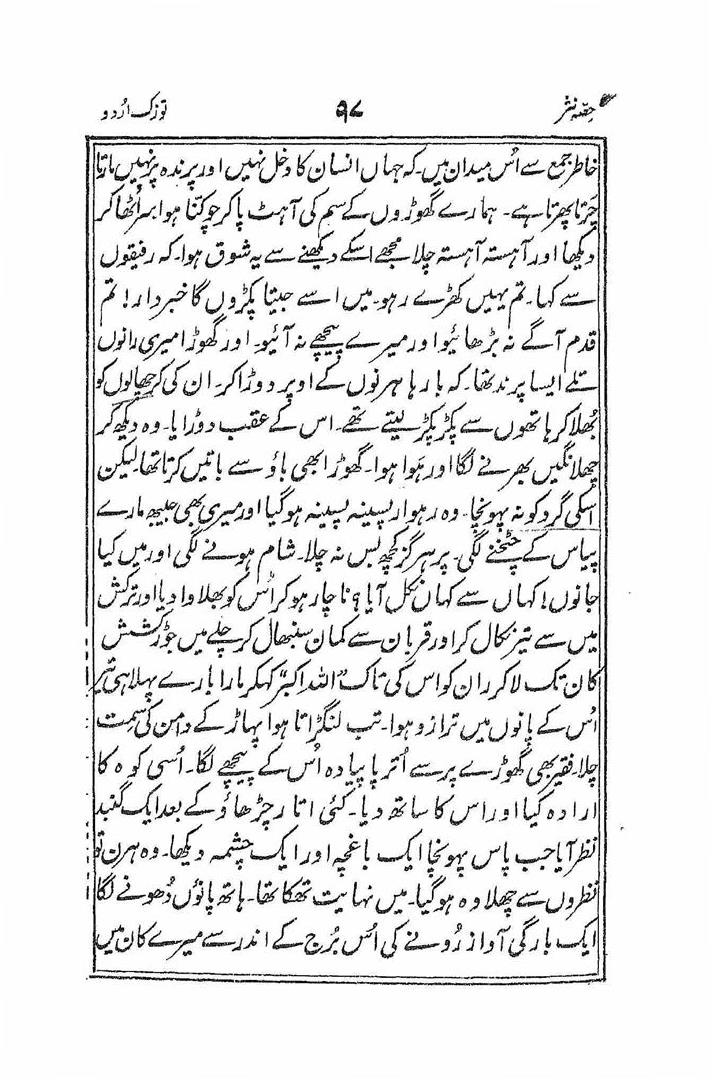 حصّہ نثر ۹۸ توزک اُردو
خاطر جمع سے اُس میدان میں۔ کہ جہاں انسان کا دخل نہیں اور پرندہ پر نہیں مارتا
چَرتا پھرتا ہے۔ ہمارے گھوڑوں کے سم کی آہٹ پاکر چوکنّا ہوا۔ سر اُٹھا کر
دیکھا اور آہستہ آہستہ چلا مجھے اسکے دیکھنے سے یہ شوق ہوا۔ کہ رفیقوں
سے کہا۔ تم یہیں کھڑے رہو۔ میں اسے جیتا پکڑوں گا خبردار! تم
قدم آگے نہ بڑھائیو اور میرے پیچھے نہ آئیو۔ اور گھوڑا میری رانوں
تلے ایسا پرند تھا۔ کہ بارہا ہرنوں کے اوپر دوڑا کر۔ ان کی کرچھالوں کو
بُھلا کر ہاتھوں سے پکڑ پکڑ لیتے تھے۔ اس کے عقب دوڑایا۔ وہ دیکھ کر
چھلانگیں بھرنے لگا اور ہَوا ہوا۔ گھوڑا بھی باؤ سے باتیں کرتا تھا۔ لیکن
اسکی گرد کو نہ پہونچا۔ وہ رہوار پسینہ پسینہ ہوگیا اور میری بھی جیبھ مارے
پیاس کے چٹخنے لگی۔ پر ہرگز کچھ بس نہ چلا۔ شام ہونے لگی اور میں کیا
جانوں! کہاں سے کہاں نکل آیا؟ ناچار ہوکر اُس کو بھلاوا دیا اور ترکش
میں سے تیر نکال کر اور قربان سے کمان سنبھال کر چلے میں جوڑ کشش
کان تک لاکر ران کو اس کی تاک "اللہ اکبر" کہکر مارا بارے پہلا ہی تیر
اُس کے پانوں میں ترازو ہوا۔ تب لنگڑاتا ہوا پہاڑ کے دامن کی سمت
چلا۔ فقیر بھی گھوڑے پر سے اُتر پا پیادہ اُس کے پیچھے لگا۔ اُسی کوہ کا
ارادہ کیا اور اس کا ساتھ دیا۔ کئی اتار چڑھاؤ کے بعد ایک گنبد
نظر آیا جب پاس پہونچا ایک باغچہ اور ایک چشمہ دیکھا۔ وہ ہرن تو
نظروں سے چھلاوہ ہوگیا۔ میں نہایت تھکا تھا۔ ہاتھ پانؤں دُھونے لگا
ایک بارگی آواز رُونے کی اُس بُرج کے اندر سے میرے کان میں